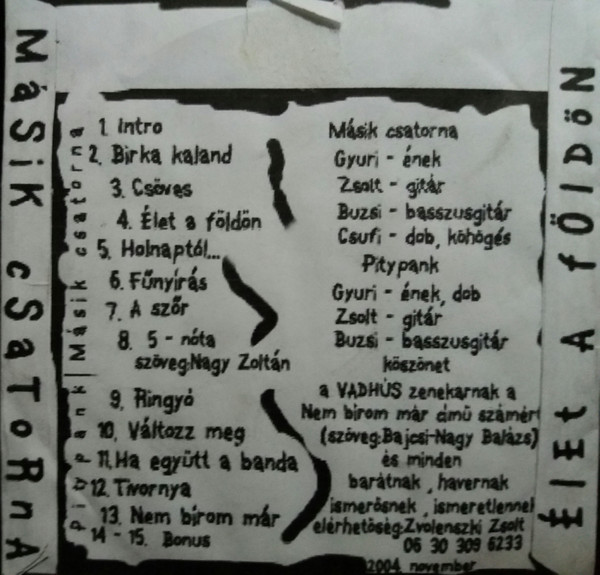 MáSiK cSaToRnA
Másik csatorna
Pitypank
1. Intro
2. Birka kaland
3. Csöves
4. Élet a földön
5. Holnaptól...
6. Fűnyírás
7. A szőr
8. 5 - nóta
szöveg:Nagy Zoltán
9. Ringyó
10. Változz meg
11. Ha együtt a banda
12. Tivornya
13. Nem bírom már
14 - 15. Bonus
Másik csatorna
Gyuri - ének
Zsolt - gitár
Buzsi - basszusgitár
Csufi - dob, köhögés
Pitypank
Gyuri - ének, dob
Zsolt - gitár
Buzsi - basszusgitár
köszönet
a VADHÚS zenekarnak a
Nem bírom már című számért
(szöveg:Bajcsi-Nagy Balázs)
és minden
barátnak, havernak
ismerősnek, ismeretlennek
elérhetőség:Zvolenszki Zsolt
06 30 309 6233
2004 november
ÉlEt A fÖlDöN